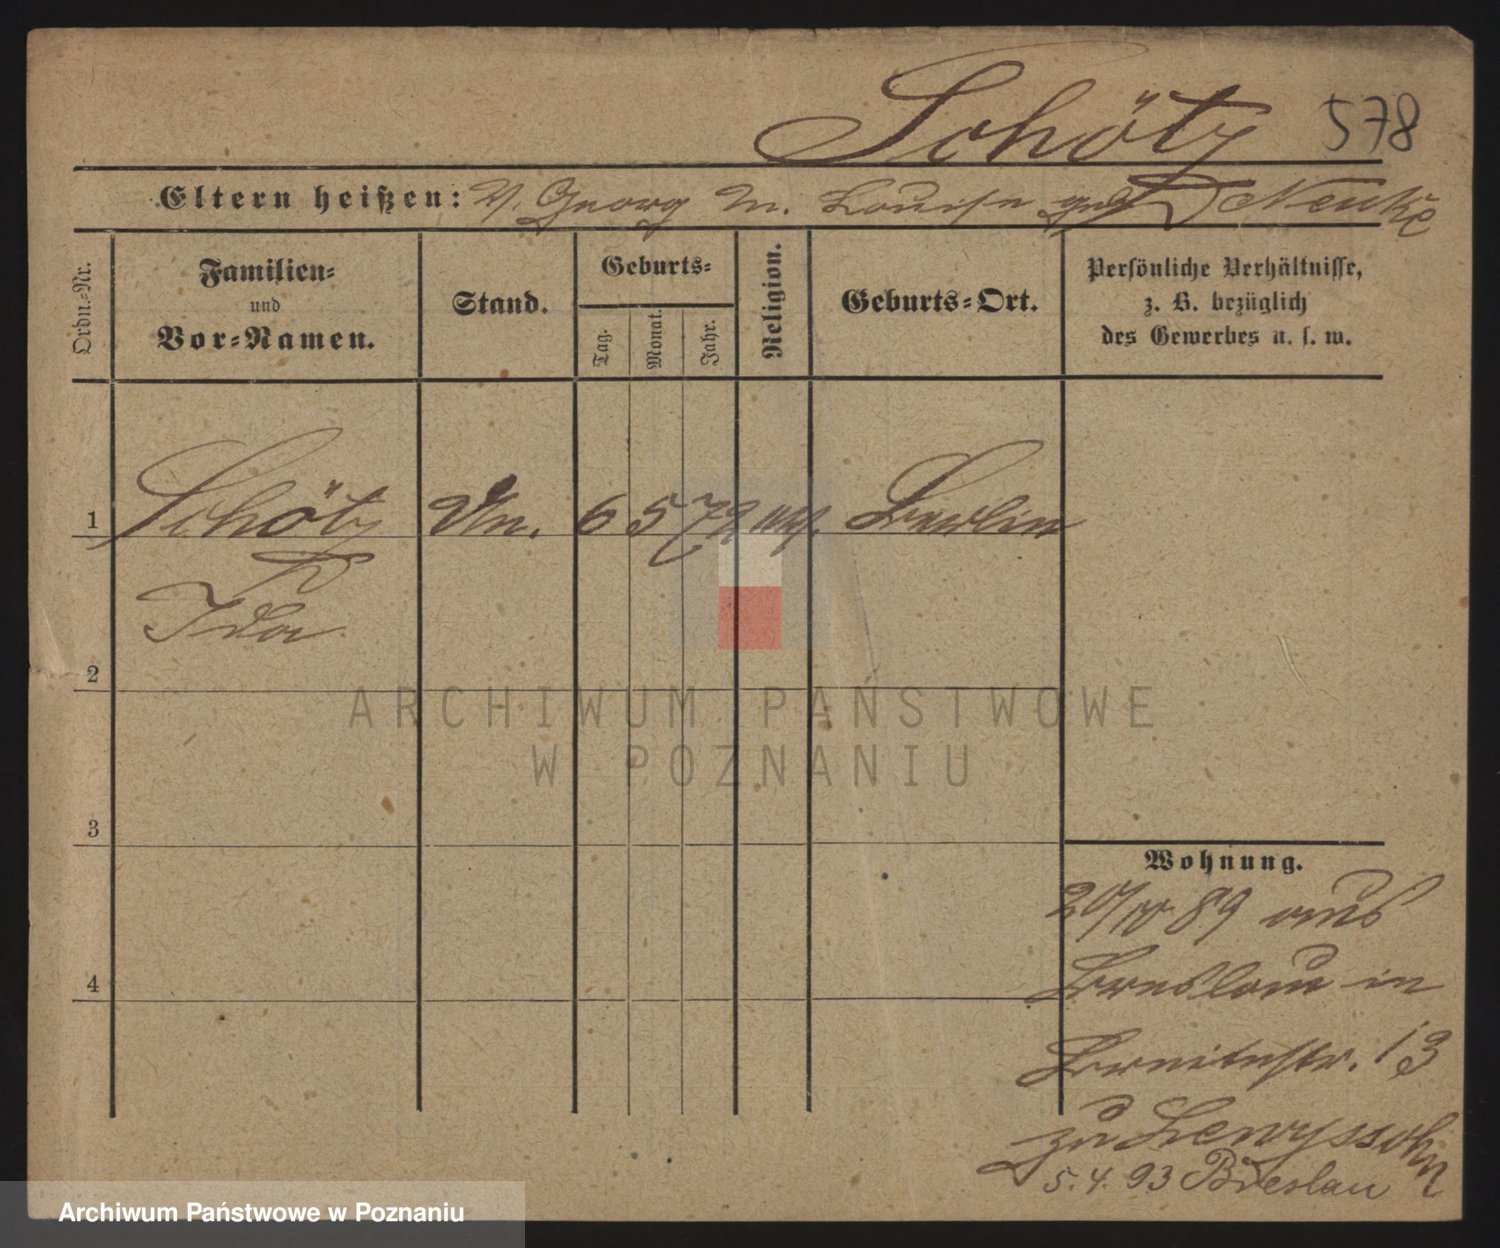 Schötz 578
Eltern heißen: V. Georg M. Louise geb.
Ordn.-Nr.
Familien-
und
Vor-Namen.
Stand.
Geburts-
Tag.
Monat.
Jahr.
Religion.
Geburts-Ort.
Persönliche Verhältnisse,
z. B. bezüglich
des Gewerbes u. s. w.
1 Schötz 6 5 72 Berlin
Ida
2
3
4
ARCHIWUM PAŃSTWOWE
W POZNANIU
Wohnung.
89 aus
Breslau in
Breitestr. 13
zu Lewyssohn
5. 4. 93 Breslau
Archiwum Państwowe w Poznaniu